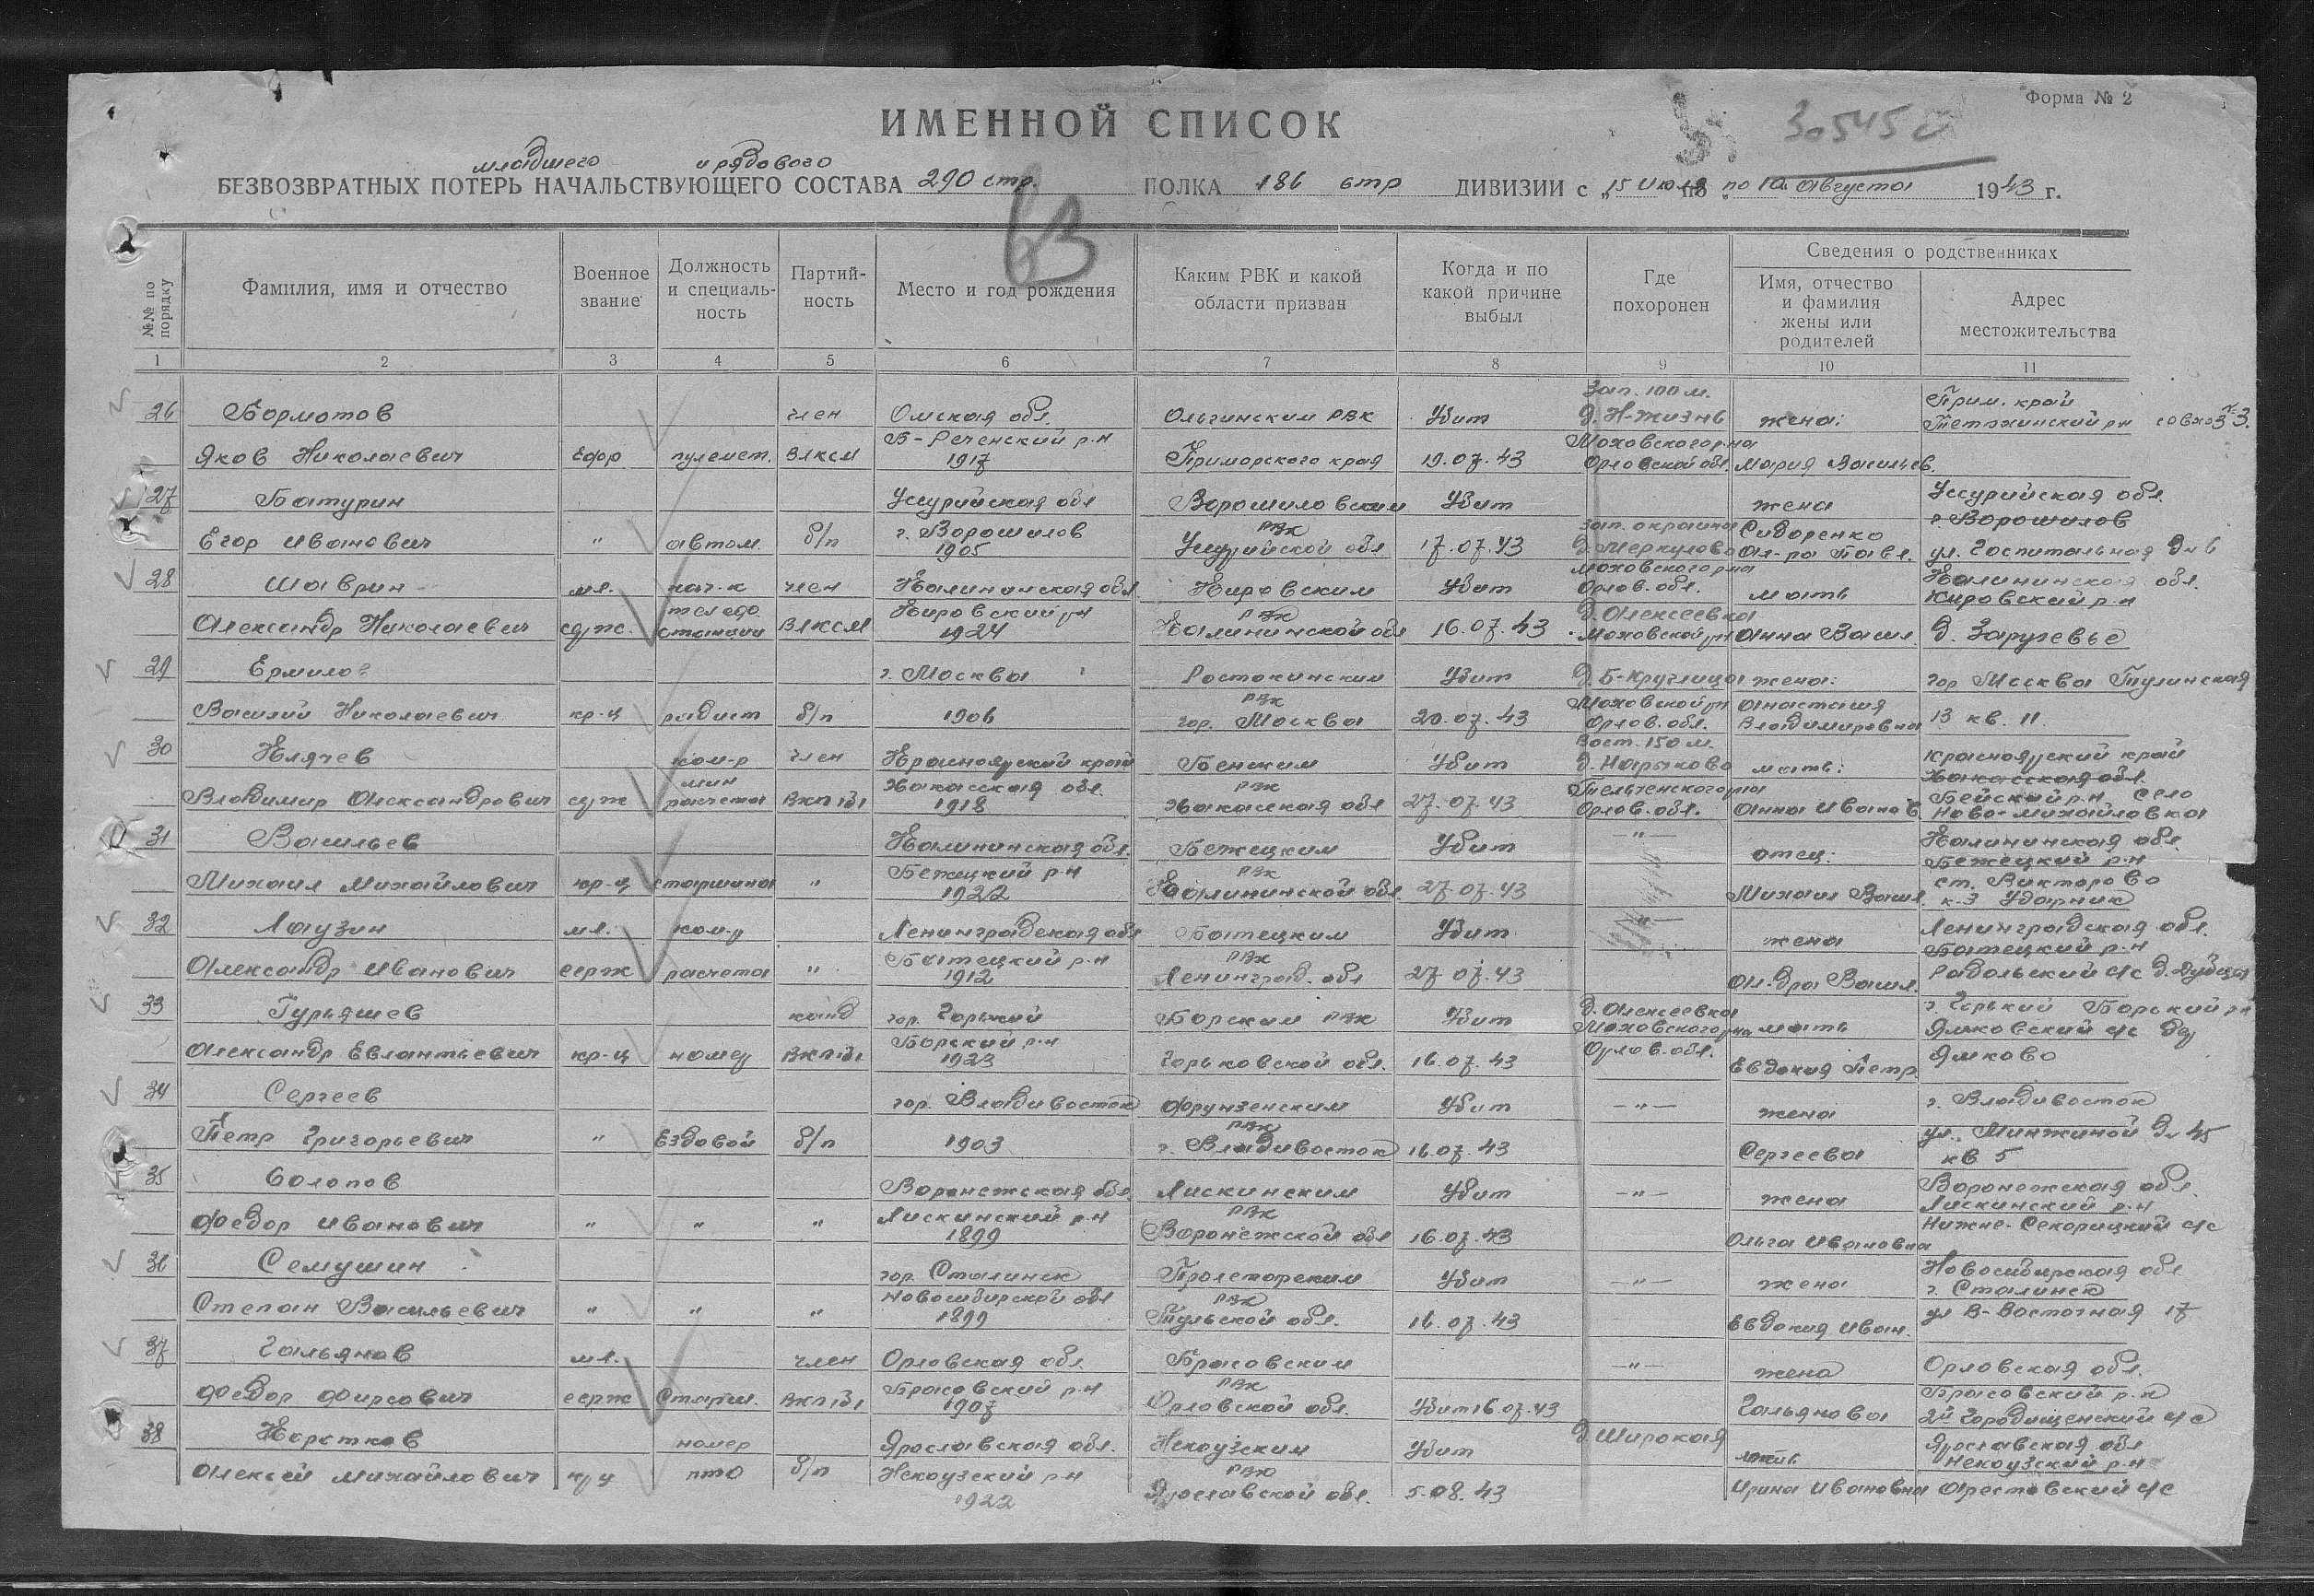 Форма № 2
ИМЕННОЙ СПИСОК
30545 с
младшего и рядового
БЕЗВОЗВРАТНЫХ ПОТЕРЬ НАЧАЛЬСТВУЮЩЕГО СОСТАВА 290 стр. ПОЛКА 186 стр ДИВИЗИИ с „15 июля по 10 августа 1943 г.
№№ по порядку | Фамилия, имя и отчество | Военное звание | Должность и специаль-ность | Партий-ность | Место и год рождения | Каким РВК и какой области призван | Когда и по какой причине выбыл | Где похоронен | Сведения о родственниках
Имя, отчество и фамилия жены или родителей | Адрес местожительства
1 2 3 4 5 6 7 8 9 10 11
26 Борматов член Омская обл. Ольгинским РВК Убит Зап. 100 м. д. Н-жизнь жена: Прим. край Тетюхинский рн совхоз № 3.
Яков Николаевич Ефр пулемет. ВЛКСМ Б-Реченский р-н 1917 Приморского края 19.07.43 Моховского рна Орловской обл. Мария Васильев.
27 Батурин Уссурийская обл Ворошиловским РВК Убит жена Уссурийская обл. г Ворошилов
Егор Иванович " автом. б/п г. Ворошилов 1905 Уссурийской обл 17.07.43 зап. окраина д. Меркулово Моховского рна Орлов. обл. Сидоренко Ал-ра Павл. ул. Госпитальная д № 6
28 Шаврин мл. нач-к член Калининская обл Кировским РВК Убит мать Калининской обл. Кировский р-н
Александр Николаевич срж. телефо станции ВЛКСМ Кировский рн 1924 Калининской обл 16.07.43 д. Алексеевка Моховской рн Анна Васил. д. Заручевье
29 Ермилов г. Москва Ростокинским РВК Убит д. Б-Круглица жена: гор Москва Тулинская
Василий Николаевич кр-ц радист б/п 1906 гор. Москва 20.07.43 Моховской рн Орлов. обл. Анастасия Владимировна 13 кв. 11.
30 Клячев ком-р член Красноярский край Бейским РВК Убит Вост. 150 м. д. Нарыково мать: Красноярский край Хакасская обл.
Владимир Александрович срж мин расчета ВКП/б/ Хакасская обл. 1918 Хакасская обл 27.07.43 Тельченского рна Орлов. обл. Анна Иванов. Бейский р-н село Ново-михайловка
31 Васильев Калининская обл. Бежецким РВК Убит —"— отец: Калининская обл Бежецкий р-н
Михаил Михайлович кр-ц старшина " Бежецкий р-н 1922 Калининской обл. 27.07.43 Михаил Васил. ст. Викторово к-з Ударник
32 Лаузин мл. ком-р Ленинградская обл Батецким РВК Убит —"— жена Ленинградская обл. Батецкий р-н
Александр Иванович серж расчета " Батецкий р-н 1912 Ленинград. обл 27.07.43 Ал-дра Васил.
33 Гурьяшев канд гор. Горький Борским РВК Убит д. Алексеевка Моховского рна мать г Горький Борский рн Ямковский с/с дер
Александр Евлантьевич кр-ц номер ВКП/б/ Борский р-н 1923 Горьковской обл. 16.07.43 Орлов. обл. Евдокия Петр. Ямково
34 Сергеев гор. Владивосток Фрунзенским РВК Убит —"— жена г. Владивосток
Петр Григорьевич " Ездовой б/п 1903 г. Владивосток 16.07.43 Сергеева ул. Минжиной д № 45 кв 5
35 Солопов Воронежская обл. Лискинским РВК Убит —"— жена Воронежская обл. Лискинский р-н
Федор Иванович " " " Лискинский р-н 1899 Воронежской обл 16.07.43 Ольга Ивановна с/с
36 Семушин гор. Сталинск Пролетарским РВК Убит —"— жена Новосибирская обл г. Сталинск
Степан Васильевич " " " Новосибирской обл 1899 Тульской обл. 16.07.43 Евдокия Иван. ул В-Восточная 17
37 Гальянов мл. член Орловская обл. Брасовским РВК —"— жена Орловская обл.
Федор Фирсович серж Старш. ВКП/б/ Брасовский р-н 1907 Орловской обл. Убит 16.07.43 Гальянова Брасовский р-н 2й Городищенский с/с
38 Коротков номер Ярославская обл. Некоузским РВК Убит д. Широкая мать Ярославская обл Некоузский р-н
Алексей Михайлович кр-ц ПТО б/п Некоузский р-н 1922 Ярославской обл. 5.08.43 Ирина Ивановна с/с